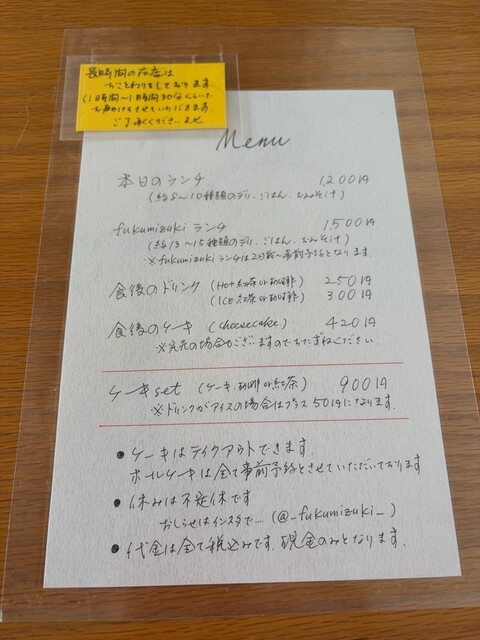 長時間の在席は
おことわりをしております。
(1時間〜1時間30分くらいで
お声がけをさせていただきます。
ご了承くださいませ
Menu
本日のランチ 1,200円
(約8〜10種類のデリ、ごはん、おみそ汁)
fukumizuki ランチ 1,500円
(約13〜15種類のデリ、ごはん、おみそ汁)
※fukumizuki ランチは2日前〜事前予約となります。
食後のドリンク (Hot 紅茶 or 珈琲) 250円
(ICE 紅茶 or 珈琲) 300円
食後のケーキ (cheesecake) 420円
※完売の場合もございますのでおたずねください。
ケーキset (ケーキ、珈琲or紅茶) 900円
※ドリンクがアイスの場合はプラス50円になります。
● ケーキはテイクアウトできます。
ホールケーキは全て事前予約とさせていただいております
● 休みは不定休です
おしらせはインスタで… (@_fukumizuki_)
● 代金は全て税込みです。現金のみとなります。